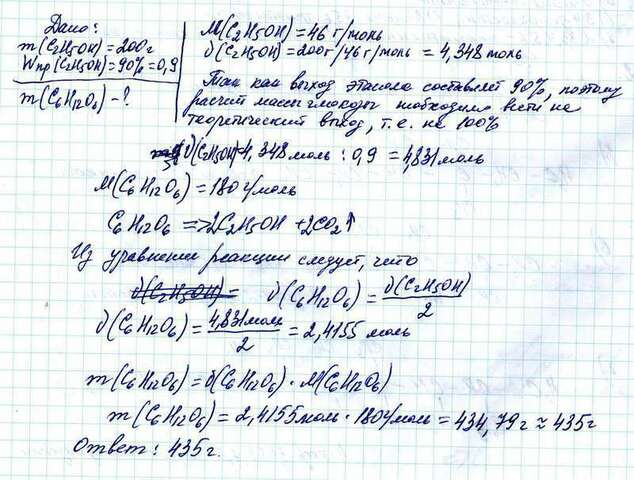 Дано:
m(C2H5OH)=200г
Wпр(C2H5OH)=90%=0,9
m(C6H12O6)-?
M(C2H5OH)=46 г/моль
ν(C2H5OH)=200г/46 г/моль = 4,348 моль
Так как выход этанола составляет 90%, поэтому
расчет массы глюкозы необходимо вести на
теоретический выход, т.е. на 100%
ν(C2H5OH)=4,348 моль : 0,9 = 4,831 моль
M(C6H12O6)=180 г/моль
C6H12O6 => 2C2H5OH + 2CO2↑
Из уравнения реакции следует, что
ν(C2H5OH)= ν(C6H12O6) = ν(C2H5OH)/2
ν(C6H12O6) = 4,831 моль/2 = 2,4155 моль
m(C6H12O6) = ν(C6H12O6) · M(C6H12O6)
m(C6H12O6) = 2,4155 моль · 180 г/моль = 434,79 г ≈ 435 г
Ответ: 435 г.